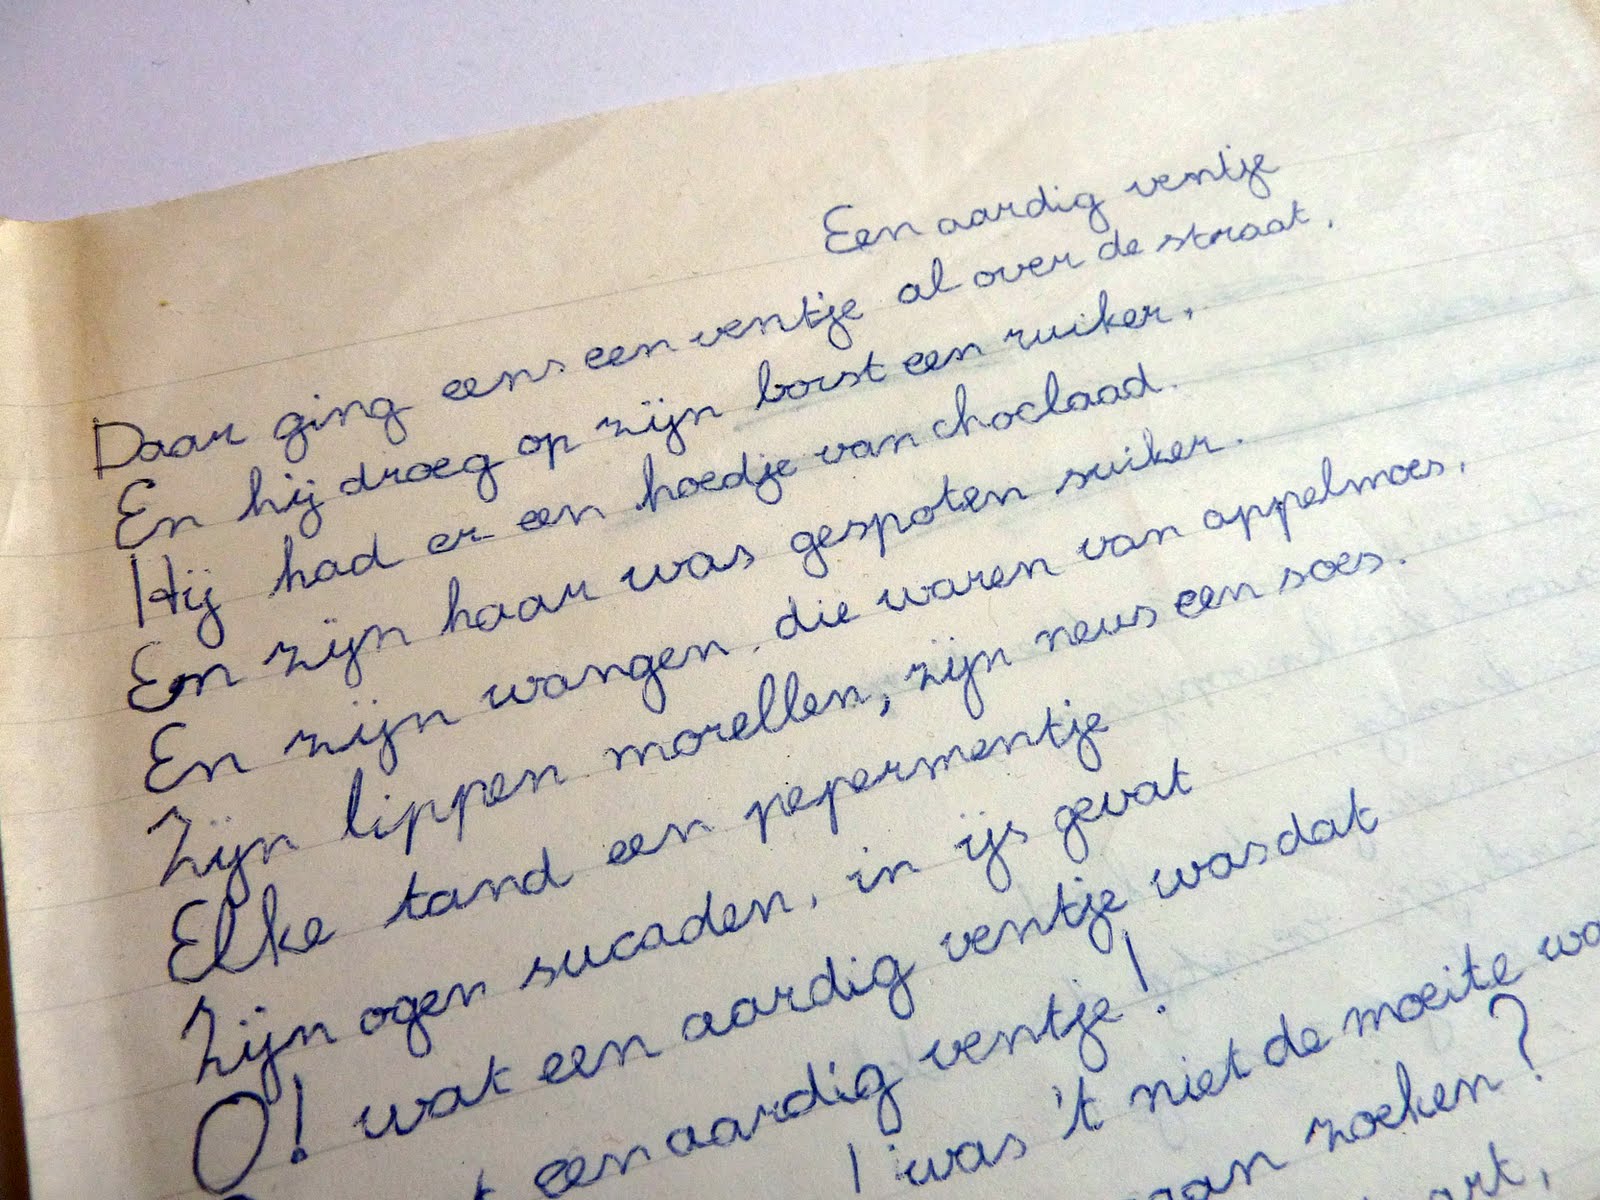 Een aardig ventje
Daar ging eens een ventje al over de straat.
En hij droeg op zijn borst een ruiker.
Hij had er een hoedje van choclaad.
En zijn haar was gespoten suiker.
En zijn wangen die waren van appelmoes.
Zijn lippen morellen, zijn neus een soes.
Elke tand een pepermentje
Zijn ogen sucaden, in ijs gevat
O! wat een aardig ventje was dat
een aardig ventje!
was 't niet de moeite
zoeken?